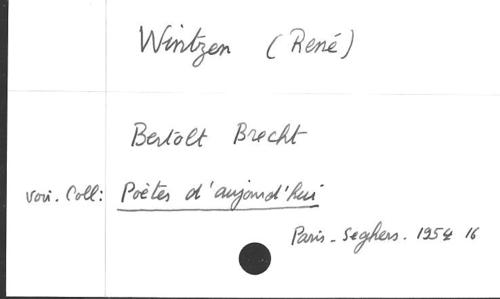 Wintzen (René)
Bertolt Brecht
voir. Coll: Poètes d'aujourd'hui
Paris - Seghers. 1954 16